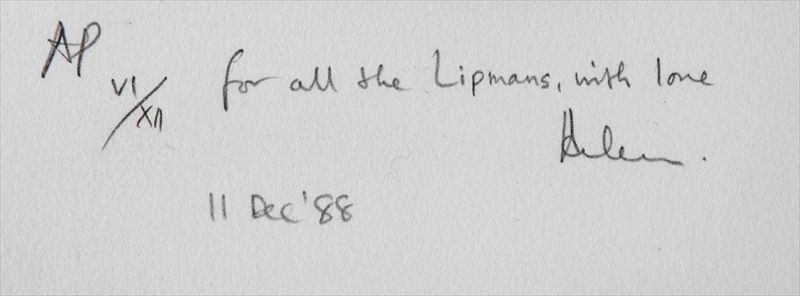 AP VI/XII for all the Lipmans, with love
Helen.
11 Dec '88